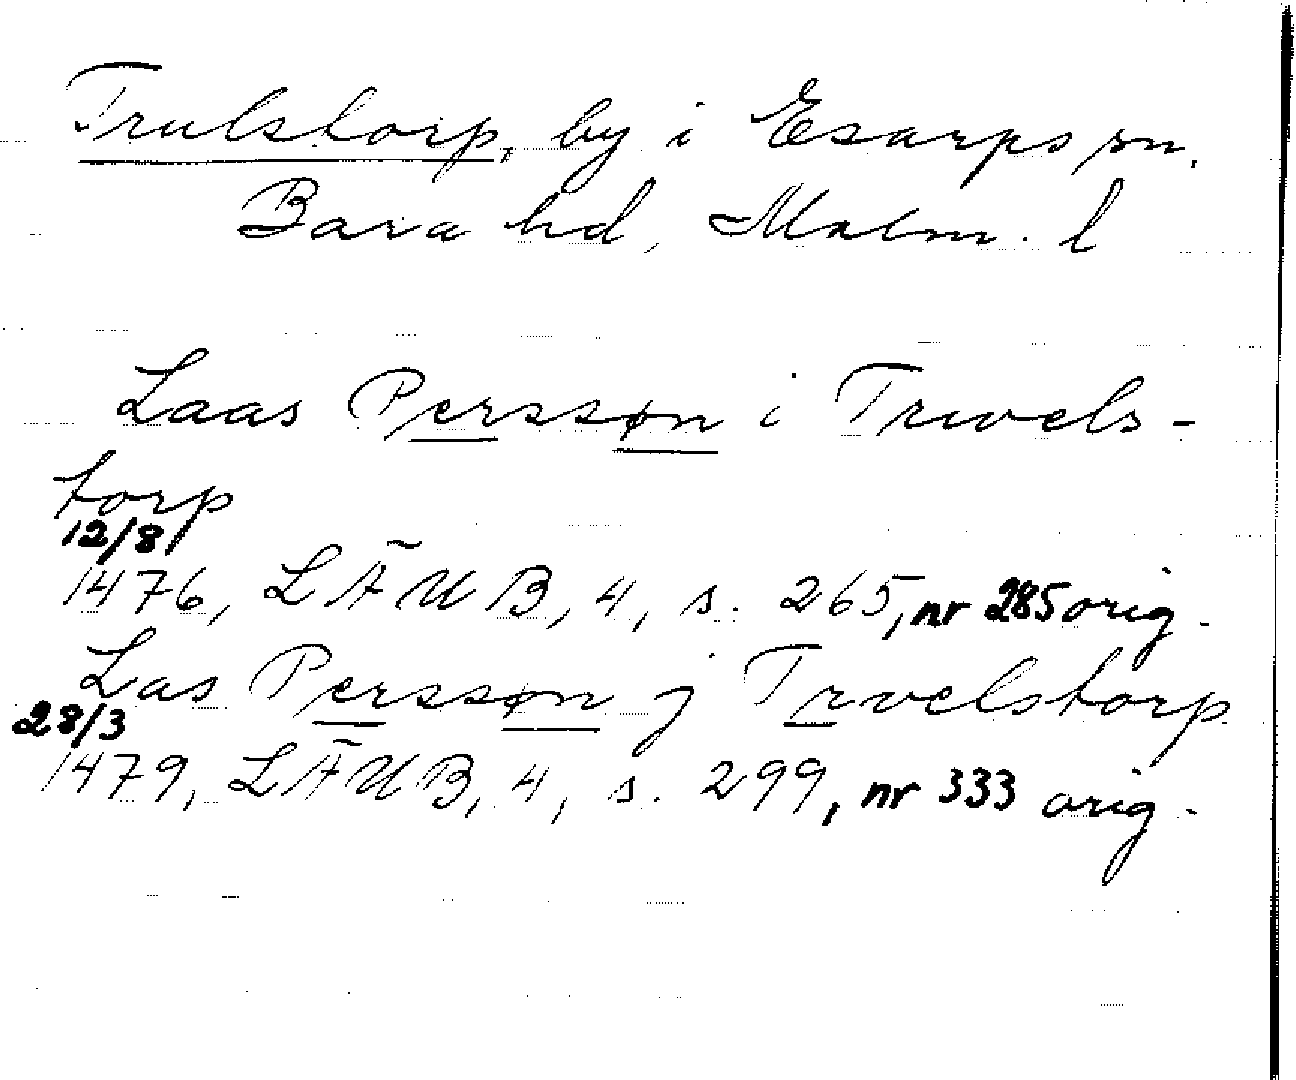 Trulstorp, by i Esarps sn.
Bara hd, Malm. l
Laas Perssøn i Truvels-
torp
12/8
1476, LÄUB, 4, s. 265, nr 285 orig.
Las Perssøn j Trvelstorp
28/3
1479, LÄUB, 4, s. 299, nr 333 orig.